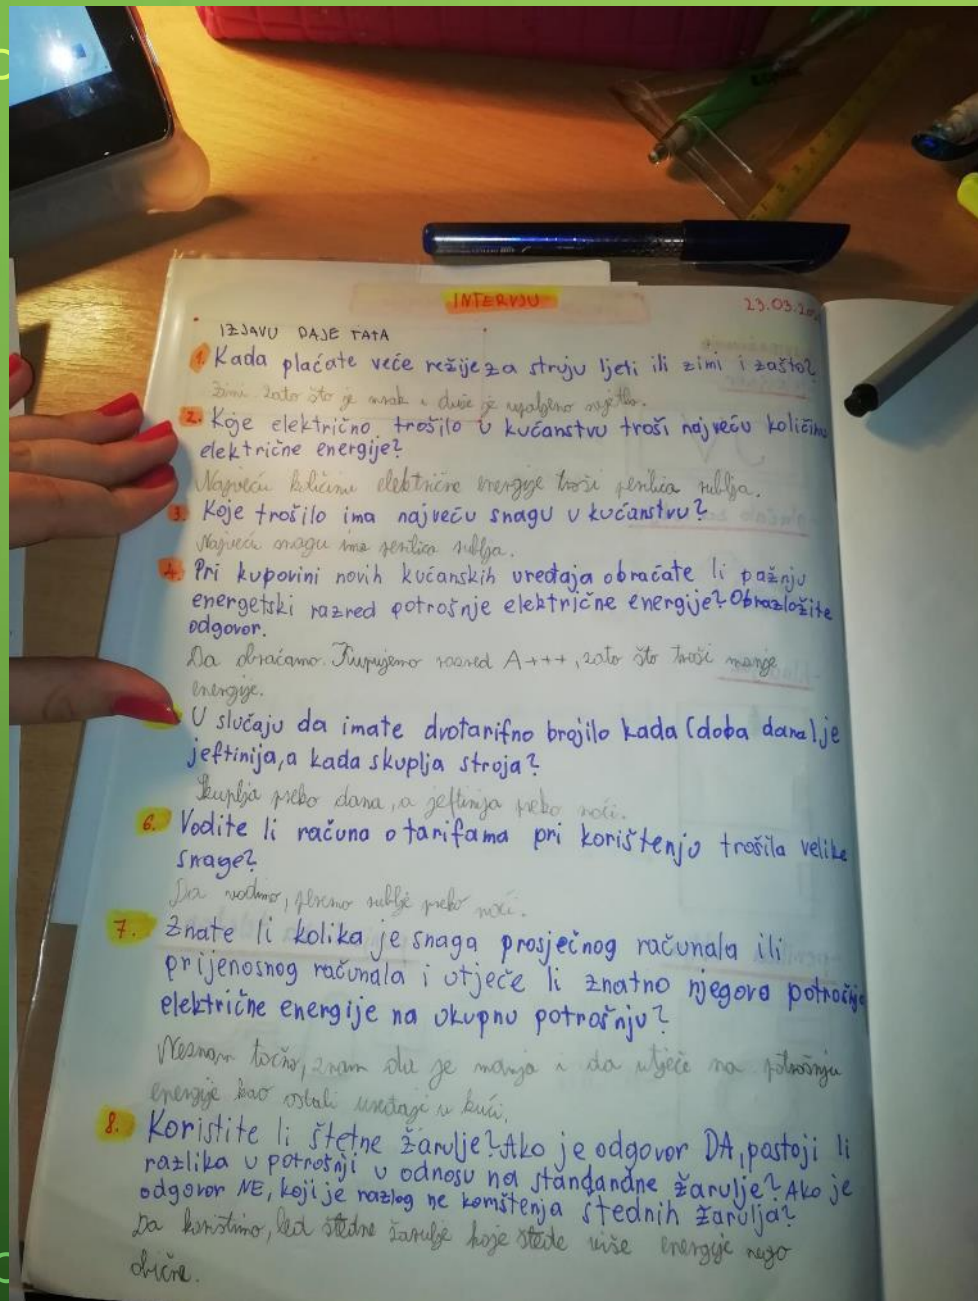 INTERVJU
23.03.20
IZJAVU DAJE TATA
1. Kada plaćate veće režije za struju ljeti ili zimi i zašto?
Zimi zato što je mrak i duže je upaljeno svjetlo.
2. Koje električno trošilo u kućanstvu troši najveću količinu
električne energije?
Najveću količinu električne energije troši perilica rublja.
3. Koje trošilo ima najveću snagu u kućanstvu?
Najveću snagu ima perilica rublja.
4. Pri kupovini novih kućanskih uređaja obraćate li pažnju
energetski razred potrošnje električne energije? Obrazložite
odgovor.
Da obraćamo. Kupujemo razred A+++, zato što troši manje
energije.
U slučaju da imate dvotarifno brojilo kada (doba dana) je
jeftinija, a kada skuplja stroja?
Skuplja preko dana, a jeftinija preko noći.
6. Vodite li računa o tarifama pri korištenju trošila velike
snage?
Da vodimo, peremo rublje preko noći.
7. Znate li kolika je snaga prosječnog računala ili
prijenosnog računala i utječe li znatno njegova potrošnja
električne energije na ukupnu potrošnju?
Neznam točno, znam da je manja i da utječe na potrošnju
energije kao ostali uređaji u kući.
8. Koristite li štetne žarulje? Ako je odgovor DA, postoji li
razlika u potrošnji u odnosu na standandne žarulje? Ako je
odgovor NE, koji je razlog ne korištenja štednih žarulja?
Da koristimo, led štedne žarulje koje štede više energije nego
obične.